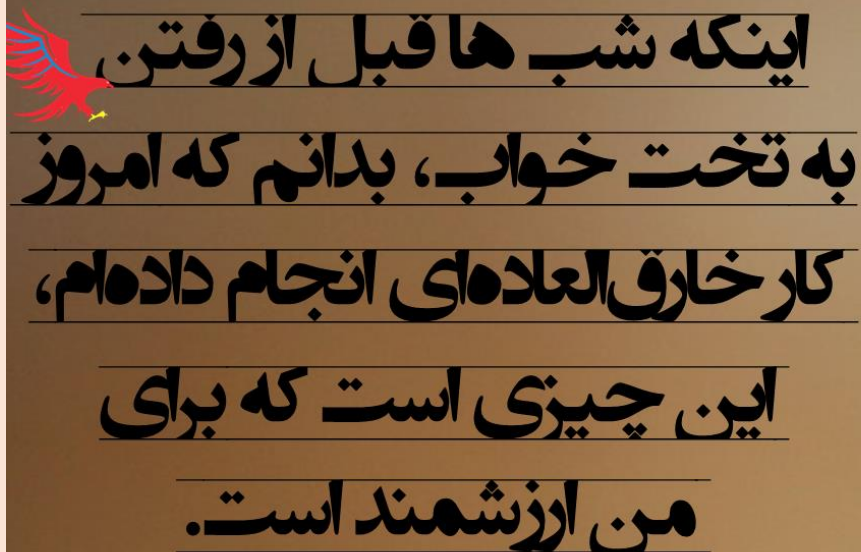 اینکه شب ها قبل از رفتن
به تخت خواب، بدانم که امروز
کار خارق‌العاده‌ای انجام داده‌ام،
این چیزی است که برای
من ارزشمند است.